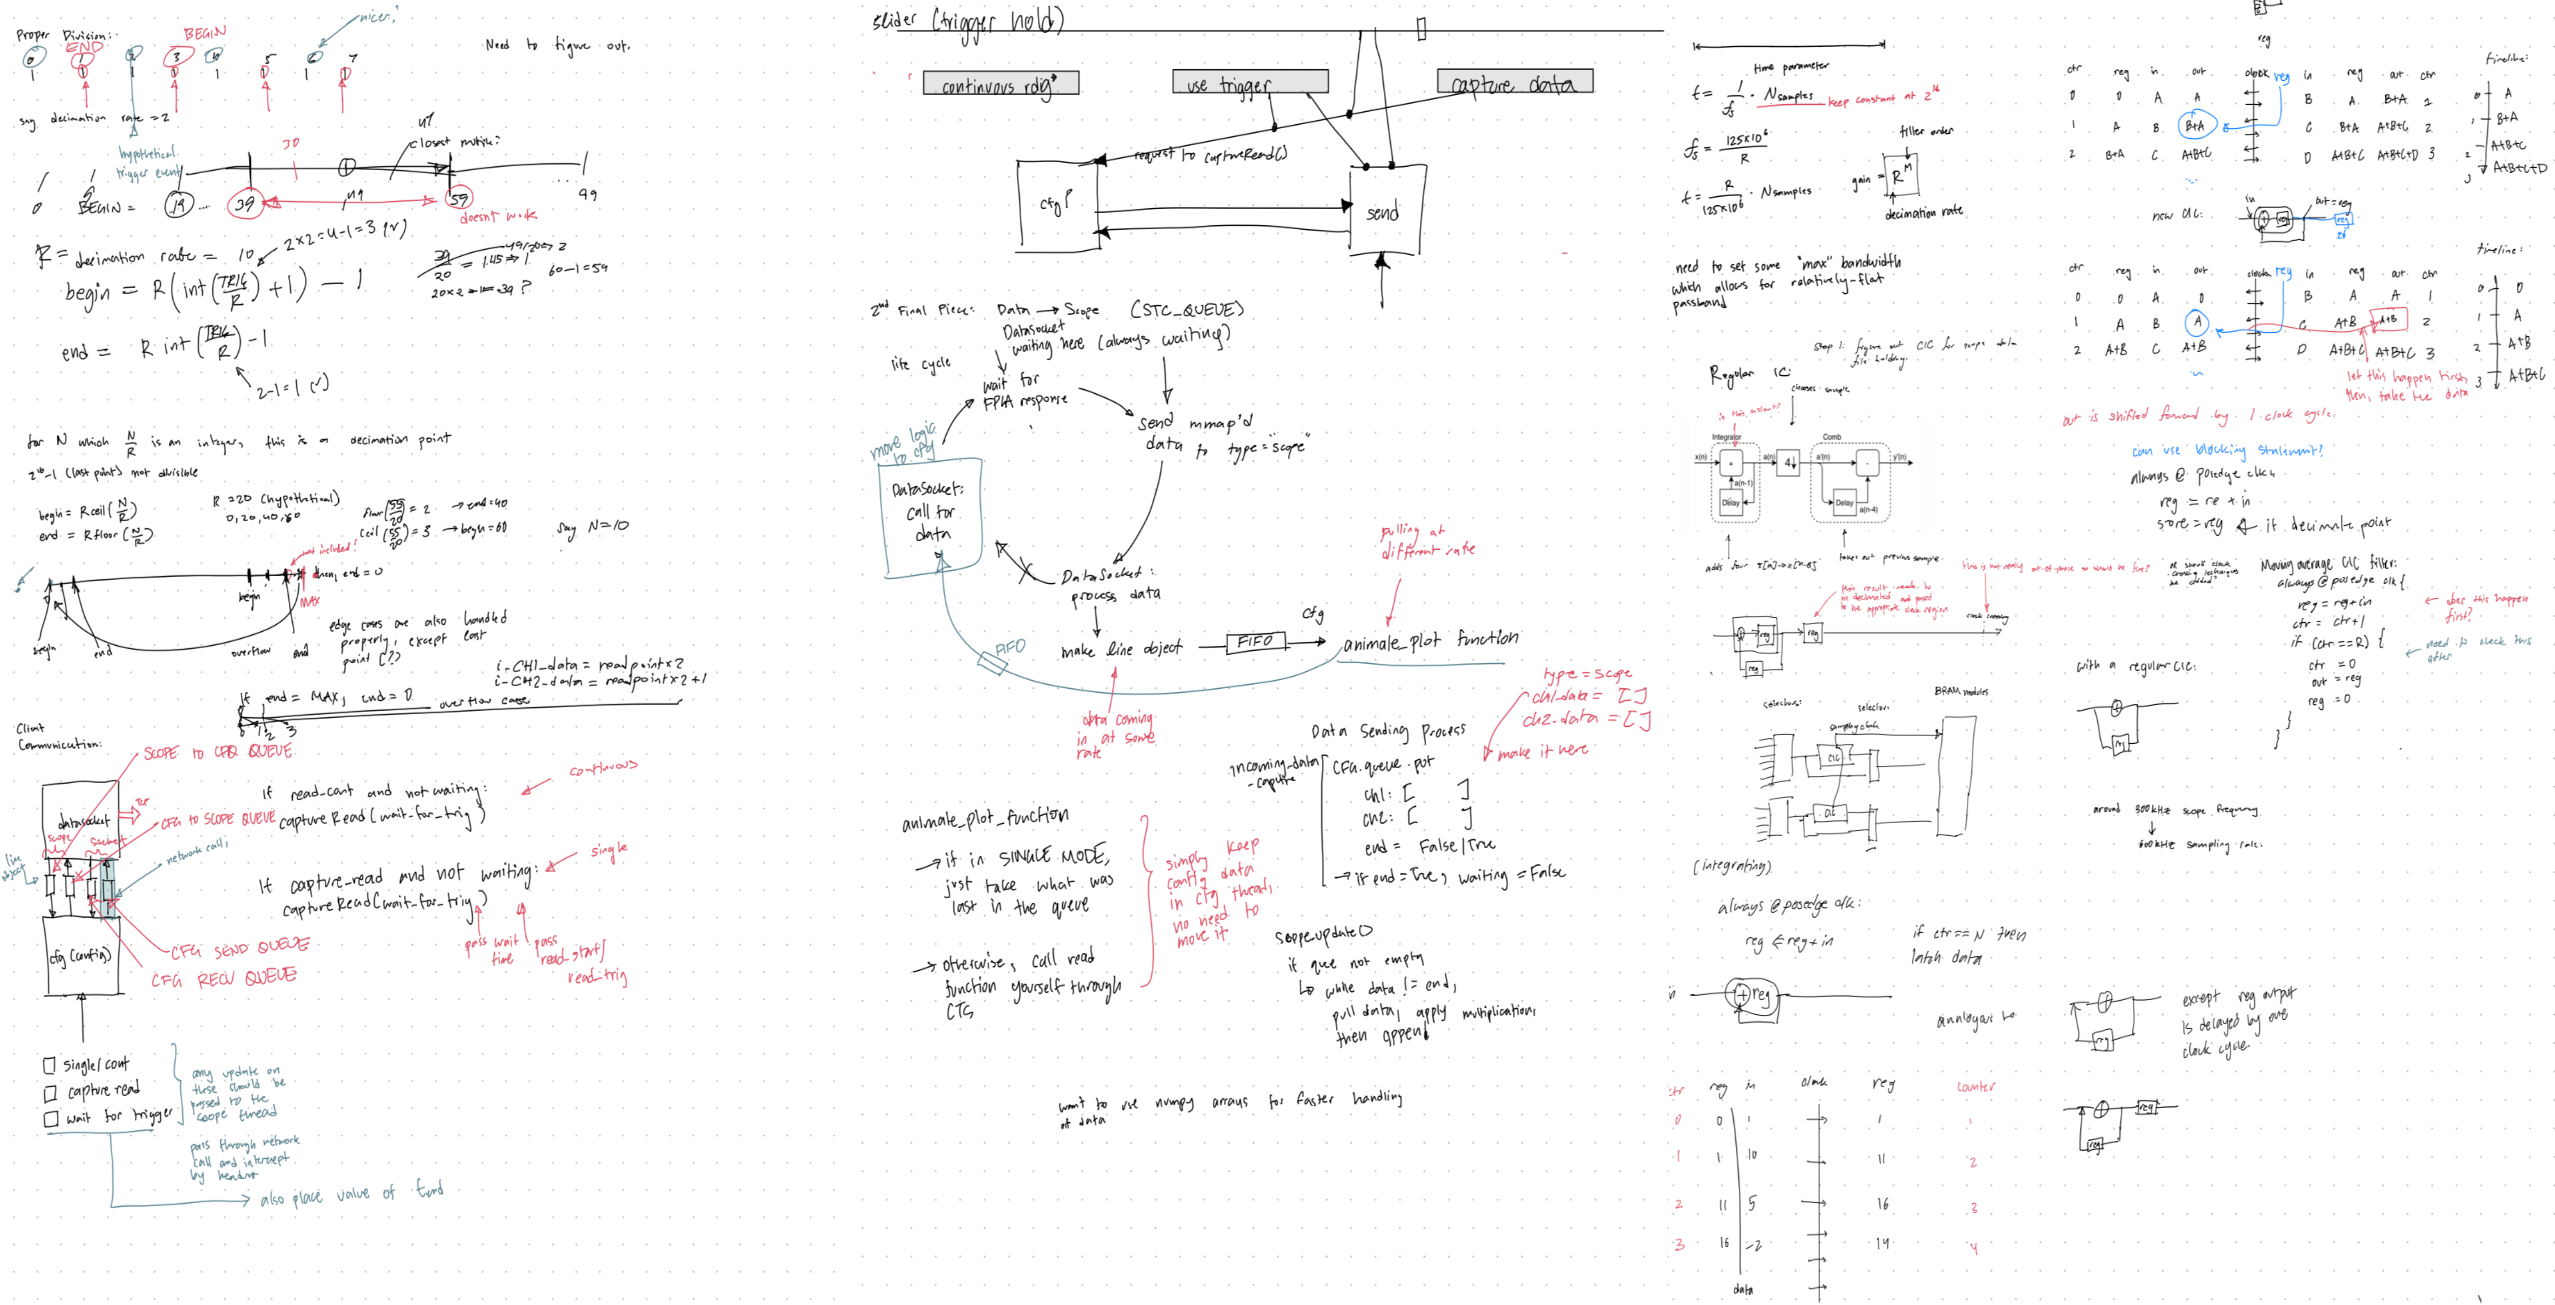 nicer!
Proper Division:
END
BEGIN
Need to figure out.
0 1 2 3 4 5 6 7
1 0 1 0 1 0 1 0
say decimation rate = 2
hypothetical
trigger event
30
closest multiple
0
BEGIN = 19 ... 39 49 59 ... 99
doesn't work
R = decimation rate = 10
2×2=4-1=3 (✓)
begin = R(int(TRIG/R)+1) - 1
39/20 = 1.45 ⇒ 1
20×2-1=39?
49/20 ⇒ 2
60-1=59
end = R int(TRIG/R) - 1
2-1=1 (✓)
for N which N/R is an integer, this is a decimation point
2^16-1 (last point) not divisible
begin = R ceil(N/R)
end = R floor(N/R)
R=20 (hypothetical)
0, 20, 40, 60
floor(55/20) = 2 → end=40
ceil(55/20) = 3 → begin=60
say N=10
not included!
then, end=0
begin
MAX
begin
end
overflow
end
edge cases are also handled
properly, except last
point (?)
i-CH1_data = readpoint×2
i-CH2_data = readpoint×2+1
If end = MAX, end = 0
overflow case
1 2 3
Client
Communication:
SCOPE to CFG QUEUE
continuous
datasocket
TCP
scope
socket
CFG to SCOPE QUEUE
If read_cont and not waiting:
captureRead(wait-for_trig)
line
object
network calls
single
If capture_read and not waiting:
captureRead(wait-for_trig)
cfg(config)
CFG SEND QUEUE
CFG RECV QUEUE
pass wait
time
pass
read_start/
read_trig
single/cont
capture read
wait for trigger
any update on
these should be
passed to the
scope thread
pass through network
call and intercept
by
also place value of tend
slider (trigger hold)
continuous rdig
use trigger
capture data
request to captureRead()
cfg?
send
2nd Final Piece: Data → Scope (STC_QUEUE)
Datasocket
waiting here (always waiting)
life cycle
wait for
FPGA response
send mmap'd
data to type="scope"
move logic
to cfg
DataSocket:
call for
data
DataSocket:
process data
pulling at
different rate
make line object
FIFO
cfg
animate_plot function
FIFO
data coming
in at some
rate
type=scope
ch1_data = []
ch2-data = []
make it here
Data Sending Process
incoming_data
-capture
CFG.queue.put
ch1: [ ]
ch2: [ ]
end = False/True
→ if end=True, waiting=False
animate_plot_function
→ if in SINGLE MODE,
just take what was
last in the queue
→ otherwise, call read
function yourself through
CTS
simply keep
config data
in cfg thread,
no need to
move it
scope_update()
if que not empty
↳ while data != end,
pull data, apply multiplication,
then append
want to use numpy arrays for faster handling
of data
time parameter
t = 1/fs · Nsamples
keep constant at 2^16
fs = 125×10^6/R
t = R/125×10^6 · Nsamples
filter order
gain = R^M
decimation rate
need to set some "max" bandwidth
which allows for relatively-flat
passband
Step 1: figure out CIC for scope data
Regular IC:
chooses sample
is this instant?
Integrator
Comb
x(n)
+
a(n)
4↓
a'(n)
-
y'(n)
a(n-1)
Delay
Delay
a(n-4)
adds four x[n]→x[n-3]
takes out previous sample
this result needs to
be decimated and passed
to the appropriate clock region
this is not really out-of-phase so should be fine?
or should clock
crossing techniques
be added?
clock crossing
reg
reg
reg
selectors:
selector:
BRAM modules
sampling clock
CIC
CIC
(integrating)
always @posedge clk:
reg ⇐ reg+in
if ctr==N then
latch data
in
+
reg
analogous to
ctr reg in clock reg counter
0 0 1 → 1 1
1 1 10 → 11 2
2 11 5 → 16 3
3 16 -2 → 14 4
data
reg
ctr reg in out clock reg in reg out ctr
0 0 A A B A B+A 1
1 A B B+A C B+A A+B+C 2
2 B+A C A+B+C D A+B+C A+B+C+D 3
timeline:
0 A
1 B+A
2 A+B+C
3 A+B+C+D
new CIC:
in
+
reg
out=reg
reg
ctr reg in out clock reg in reg out ctr
0 0 A 0 B A A 1
1 A B A C A+B A+B 2
2 A+B C A+B D A+B+C A+B+C 3
timeline:
0 0
1 A
2 A+B
3 A+B+C
let this happen first,
then, take the data
out is shifted forward by 1 clock cycle.
can use blocking statement?
always @ posedge clk
reg = re + in
store = reg ← if decimate point
Moving average CIC filter:
always @ posedge clk {
reg = reg+in
ctr = ctr+1
if (ctr==R) {
ctr = 0
out = reg
reg = 0
}
}
← does this happen
first?
← need to check this
after
with a regular CIC:
+
reg
around 300kHz scope frequency
↓
600kHz sampling rate.
+
reg
except reg output
is delayed by one
clock cycle.
+
reg
reg